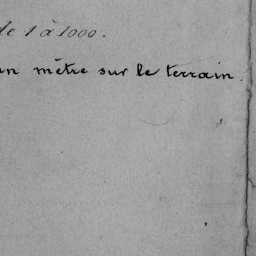 de 1 à 1000.
un mètre sur le terrain.